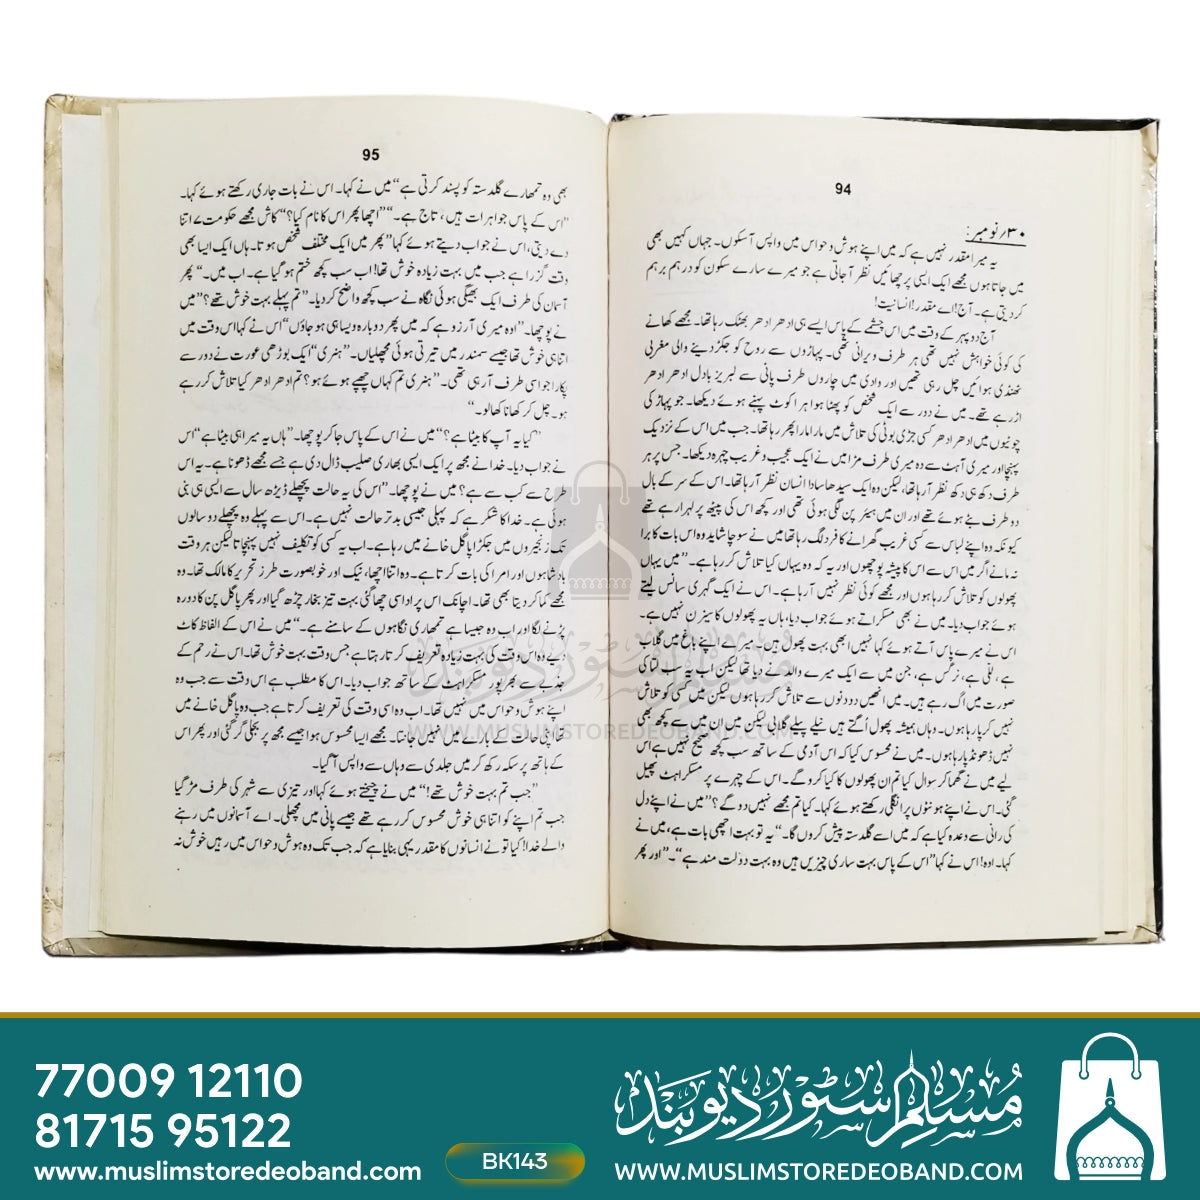 94
۳۰؍نومبر:
یہ میرا مقدر نہیں ہے کہ میں اپنے ہوش و حواس میں واپس آسکوں۔ جہاں کہیں بھی
میں جاتا ہوں مجھے ایک ایسی پرچھائیں نظر آجاتی ہے جو میرے سارے سکون کو درہم برہم
کردیتی ہے۔ آج! اے مقدر! انسانیت!
آج دوپہر کے وقت میں اس چشمے کے پاس ایسے ہی ادھر ادھر بھٹک رہا تھا۔ مجھے کھانے
کی کوئی خواہش نہیں تھی ہر طرف ویرانی تھی۔ پہاڑوں سے روح کو جکڑ دینے والی مغربی
ٹھنڈی ہوائیں چل رہی تھیں اور وادی میں چاروں طرف پانی سے لبریز بادل ادھر ادھر
اڑ رہے تھے۔ میں نے دور سے ایک شخص کو پھٹا ہوا ہرا کوٹ پہنے ہوئے دیکھا۔ جو پہاڑ کی
چوٹیوں میں ادھر ادھر کسی جڑی بوٹی کی تلاش میں مارا مارا پھر رہا تھا۔ جب میں اس کے نزدیک
پہنچا اور میری آہٹ سے وہ میری طرف مڑا میں نے ایک عجیب و غریب چہرہ دیکھا۔ جس پر ہر
طرف دکھ ہی دکھ نظر آرہا تھا، لیکن وہ ایک سیدھا سادا انسان نظر آرہا تھا۔ اس کے سر کے بال
دو طرف بٹے ہوئے تھے اور ان میں ہیئر پن لگی ہوئی تھی اور کچھ اس کی پیٹھ پر لہرا رہے تھے
کیونکہ وہ اپنے لباس سے کسی غریب گھرانے کا فرد لگ رہا تھا میں نے سوچا شاید وہ اس بات کا برا
نہ مانے اگر میں اس سے اس کا پیشہ پوچھوں اور یہ کہ وہ یہاں کیا تلاش کر رہا ہے۔ ”میں یہاں
پھولوں کو تلاش کر رہا ہوں اور مجھے کوئی نظر نہیں آرہا ہے۔ اس نے ایک گہری سانس لیتے
ہوئے جواب دیا۔ میں نے بھی مسکراتے ہوئے جواب دیا، ہاں یہ پھولوں کا سیزن نہیں ہے۔
اس نے میرے پاس آتے ہوئے کہا نہیں ابھی بہت پھول ہیں۔ میرے اپنے باغ میں گلاب
ہے، للی ہے، نرگس ہے، جن میں سے ایک میرے والد نے دیا تھا لیکن اب یہ سب لتا کی
صورت میں اگ رہے ہیں۔ میں انھیں دو دنوں سے تلاش کر رہا ہوں لیکن میں کسی کو تلاش
نہیں کر پارہا ہوں۔ وہاں ہمیشہ پھول اُگتے ہیں نیلے پیلے گلابی لیکن میں ان میں سے کچھ بھی
نہیں ڈھونڈ پارہا ہوں۔ میں نے محسوس کیا کہ اس آدمی کے ساتھ سب کچھ صحیح نہیں ہے اس
لیے میں نے گھما کر سوال کیا تم ان پھولوں کا کیا کروگے۔ اس کے چہرے پر مسکراہٹ پھیل
گئی۔ اس نے اپنے ہونٹوں پر انگلی رکھتے ہوئے کہا۔ کیا تم مجھے نہیں دوگے؟“ میں نے اپنے دل
کی رانی سے وعدہ کیا ہے کہ میں اسے گلدستہ پیش کروں گا۔“ یہ تو بہت اچھی بات ہے، میں نے
کہا۔ اوہ! اس نے کہا ”اس کے پاس بہت ساری چیزیں ہیں وہ بہت دولت مند ہے“۔ ”اور پھر
95
بھی وہ تمھارے گلدستہ کو پسند کرتی ہے“ میں نے کہا۔ اس نے بات جاری رکھتے ہوئے کہا۔
”اس کے پاس جواہرات ہیں، تاج ہے۔“ ”اچھا پھر اس کا نام کیا؟“ کاش مجھے حکومت ۷ اتنا
دے دیتی، اس نے جواب دیتے ہوئے کہا ”پھر میں ایک مختلف شخص ہوتا۔ ہاں ایک ایسا بھی
وقت گزرا ہے جب میں بہت زیادہ خوش تھا! اب سب کچھ ختم ہوگیا ہے۔ اب میں۔“ پھر
آسمان کی طرف ایک بھیگی ہوئی نگاہ نے سب کچھ واضح کردیا۔ ”تم پہلے بہت خوش تھے؟“ میں
نے پوچھا۔ ”اوہ میری آرزو ہے کہ میں پھر دوبارہ ویسا ہی ہوجاؤں“ اس نے کہا اس وقت میں
اتنا ہی خوش تھا جیسے سمندر میں تیرتی ہوئی مچھلیاں۔ ”ہنری“ ایک بوڑھی عورت نے دور سے
پکارا جو اسی طرف آرہی تھی۔ ”ہنری تم کہاں چھپے ہوئے ہو؟ تم ادھر ادھر کیا تلاش کر رہے
ہو۔ چل کر کھانا کھالو۔“
”کیا یہ آپ کا بیٹا ہے؟“ میں نے اس کے پاس جاکر پوچھا۔ ”ہاں یہ میرا ہی بیٹا ہے“ اس
نے جواب دیا۔ خدا نے مجھ پر ایک ایسی بھاری صلیب ڈال دی ہے جسے مجھے ڈھونا ہے۔ یہ اس
طرح سے کب سے ہے؟ میں نے پوچھا۔ ”اس کی یہ حالت پچھلے ڈیڑھ سال سے ایسی ہی بنی
ہوئی ہے۔ خدا کا شکر ہے کہ پہلی جیسی بدتر حالت نہیں ہے۔ اس سے پہلے وہ پچھلے دو سالوں
تک زنجیروں میں جکڑا پاگل خانے میں رہا ہے۔ اب یہ کسی کو تکلیف نہیں پہنچاتا لیکن ہر وقت
بادشاہوں اور امرا کی بات کرتا ہے۔ وہ اتنا اچھا، نیک اور خوبصورت طرز تحریر کا مالک تھا۔ وہ
مجھے کما کر دیتا بھی تھا۔ اچانک اس پر اداسی چھا گئی بہت تیز بخار چڑھ گیا اور پھر پاگل پن کا دورہ
پڑنے لگا اور اب وہ جیسا ہے تمھاری نگاہوں کے سامنے ہے۔“ میں نے اس کے الفاظ کاٹ
دیے وہ اس وقت کی بہت زیادہ تعریف کرتا رہتا ہے جس وقت بہت خوش تھا۔ اس نے رحم کے
جذبے سے بھرپور مسکراہٹ کے ساتھ جواب دیا۔ اس کا مطلب ہے اس وقت سے جب وہ
اپنے ہوش و حواس میں نہیں تھا۔ اب وہ اسی وقت کی تعریف کرتا ہے جب وہ پاگل خانے میں
تھا اپنی حالت کے بارے میں نہیں جانتا۔ مجھے ایسا محسوس ہوا جیسے مجھ پر بجلی گر گئی اور پھر اس
کے ہاتھ پر سکہ رکھ کر میں جلدی سے وہاں سے واپس آگیا۔
”جب تم بہت خوش تھے!“ میں نے چیختے ہوئے کہا اور تیزی سے شہر کی طرف مڑ گیا
جب تم اپنے کو اتنا ہی خوش محسوس کر رہے تھے جیسے پانی میں مچھلی۔ اے آسمانوں میں رہنے
والے خدا! کیا تو نے انسانوں کا مقدر یہی بنایا ہے کہ جب تک وہ ہوش و حواس میں رہیں خوش نہ
مسلم سٹور دیوبند
WWW.MUSLIMSTOREDEOBAND.COM
77009 12110
81715 95122
www.muslimstoredeoband.com
BK143
مسلم سٹور دیوبند
WWW.MUSLIMSTOREDEOBAND.COM